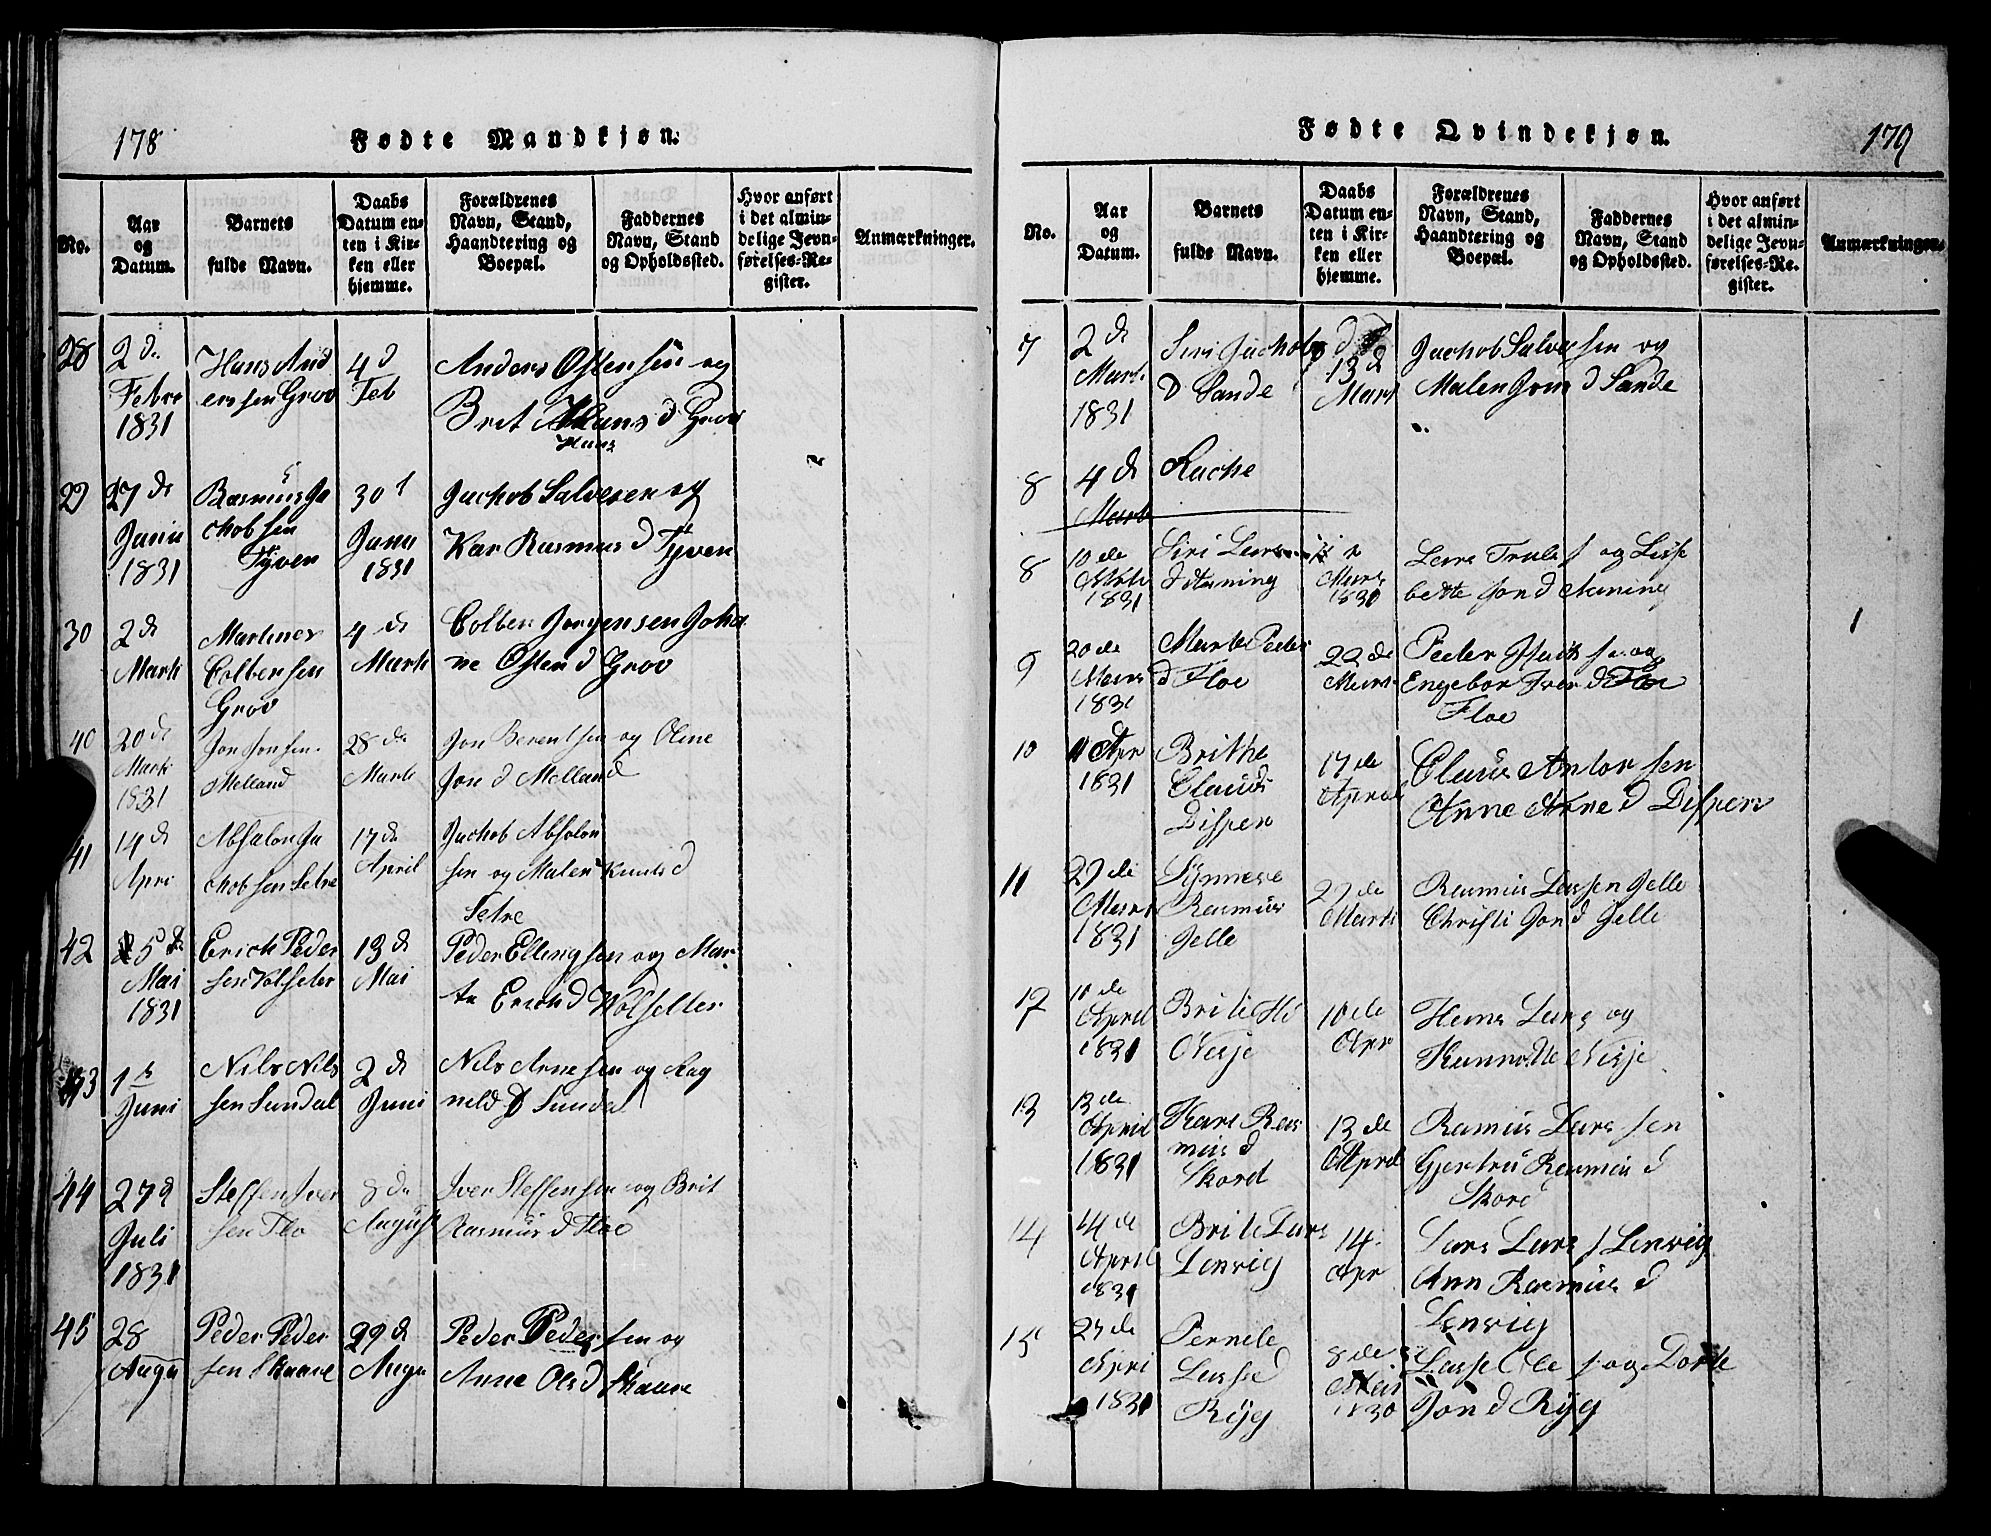 178
Fødte Mandkjøn.
No.
Aar
og
Datum.
Barnets
fulde Navn.
Daabs
Datum en-
ten i Kir-
ken eller
hjemme.
Forældrenes
Navn, Stand,
Haandtering og
Boepæl.
Faddernes
Navn, Stand
og Opholdssted.
Hvor anført
i det almin-
delige Jevn-
førelses-Re-
gister.
Anmærkninger.
28
2 d.
Febr
1831
Hans And
ersen Grov
4 d
Feb
Anders Ostensen og
Brit Hans d Grov
Hans
29
27 de
Janu
1831
Rasmus Ja
chobsen
Tyven
30 t
Janu
1831
Jachob Salvesen og
Kar Rasmus d Tyven
30
2 de
Marti
Martines
Colbensen
Grov
4 de
Marti
Colben Jorgensen Joha
ne Osten d Grov
40
20 de
Marti
1831
Jon Jonsen
Melland
28 de
Marti
Jon Berentsen og Oline
Jon d Melland
41
14 d
Apri
Absalon Ja
chobsen Setre
17 de
April
Jachob Absalon
sen og Malen Knuts d
Setre
42
5 d
Mai
1831
Erich Peder
sen Volseter
13 d
Mai
Peder Ellingsen og Mar
ta Erich d Wolsetter
43
1 s
Juni
Nils Nils
sen Sundal
2 d
Juni
Nils Arnesen og Rag
nild d Sundal
44
27 d
Juli
1831
Steffen Iver
sen Flo
8 de
August
Iver Steffensen og Brit
Rasmus d Floe
45
28
Augu
Peder Peder
sen Skaare
29 d
Augu
Peder Pedersen og
Anne Ols d Skaare
Fødte Qvindekjøn.
179
No.
Aar
og
Datum.
Barnets
fulde Navn.
Daabs
Datum en-
ten i Kir-
ken eller
hjemme.
Forældrenes
Navn, Stand,
Haandtering og
Boepæl.
Faddernes
Navn, Stand
og Opholdssted.
Hvor anført
i det almin-
delige Jevn-
førelses-Re-
gister.
Anmærkninger.
7
2 de
Mart.
1831
Siri Jachobs
D Sande
13 d
Mart
Jachob Salvesen og
Malen Jon d Sande
8
4 d
Marti
Rache
8
10 de
1831
Siri Lars
d
Mars
1830
Lars Truls s og Lisse
bette Jon d
9
20 de
Mars
1831
Marte Peder
d Floe
22 de
Mars
Peder s og
Engebor Iver d Floe
Floe
10
11 Apr
1831
Brithe
Claus
Dispen
17 de
April
Claus Antonsen
Anne Arne d Dispen
11
27 de
Mars
1831
Synneve
Rasmus
Gelle
27 de
Marti
Rasmus Lassen Gelle
Christi Jon d Gelle
12
10 de
April
1831
Brite
Nesje
10 de
Apr
Hans Lars og
Nesje
13
13 de
April
1831
Kari Ras
mus d
Skord
13 de
April
Rasmus Larssen
Gjertru Rasmus d
Skord
14
14 de
April
1831
Brite Lars
Lenvig
14
Apr
Lars Lars s Lenvig
Ann Rasmus d
Lenvig
15
25 de
Apri
1831
Pernele
Lasse d
Ryg
8 de
Mai
1830
Lasse Ole s og Dorte
Jon d Ryg